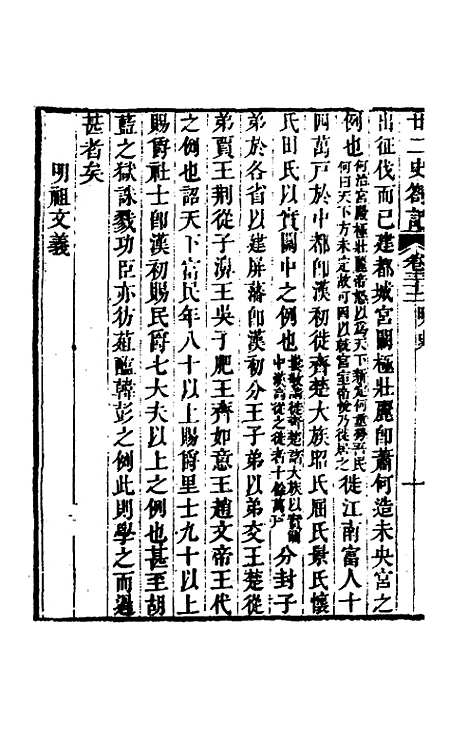 廿二史劄記 卷三十二 明史
出征伐而已建都城宮闕極壯麗卽蕭何造未央宮之
例也何治宮殿極壯麗帝怒以爲天下新定何重勞吾民何曰天下方未定故可因以就宮室帝悅乃從居之徙江南富人十
四萬戸於中都卽漢初徙齊楚大族昭氏屈氏景氏懷
氏田氏以實關中之例也婁敬請徙齊楚諸大族以實關中漢高從之徙者十餘萬戸分封子
弟於各省以建屏藩卽漢初分王子弟以弟交王楚從
弟賈王荆從子濞王吳子肥王齊如意王趙文帝王代
之例也詔天下富民年八十以上賜爵里士九十以上
賜爵社士卽漢初賜民爵七大夫以上之例也甚至胡
藍之獄誅戮功臣亦彷菹醢韓彭之例此則學之而過
甚者矣
明祖文義